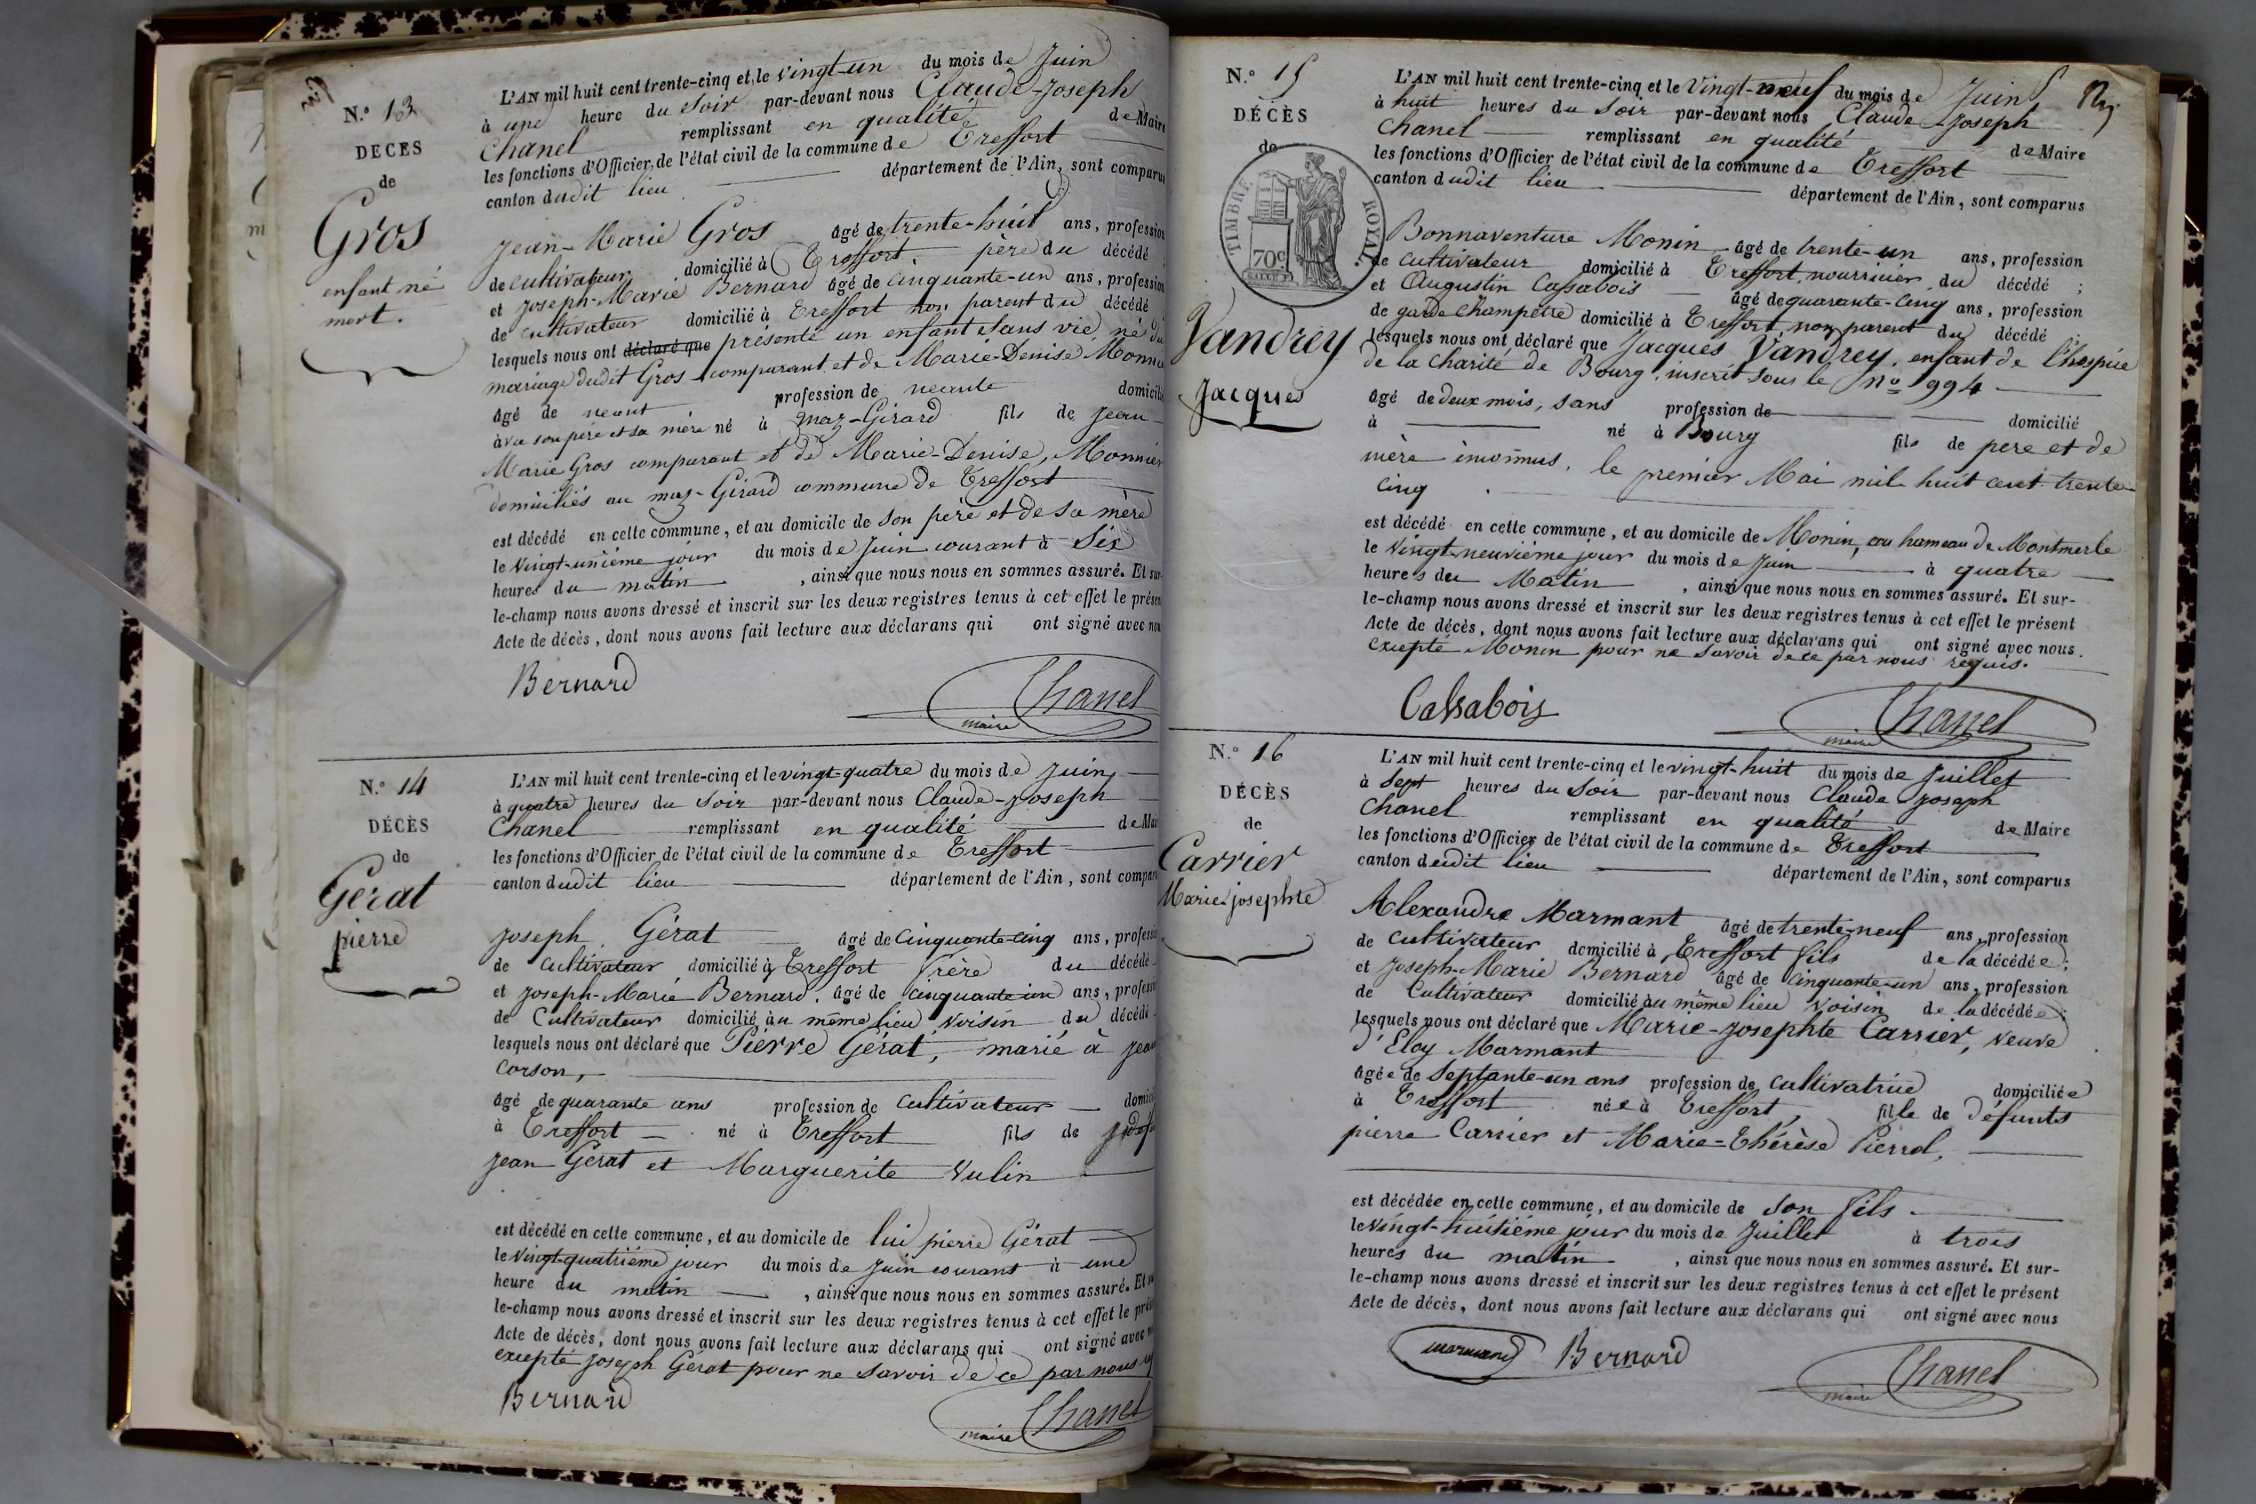 N.º 13
DÉCÈS
de
Gros
enfant né
mort.
L'AN mil huit cent trente-cinq et le vingt-un du mois de Juin
à une heure du Soir par-devant nous Claude-Joseph
Chanel remplissant en qualité de Maire
les fonctions d'Officier de l'état civil de la commune de Treffort
canton dudit lieu département de l'Ain, sont comparus
Jean-Marie Gros âgé de trente-huit ans, profession
de cultivateur domicilié à Treffort, père du décédé ;
et Joseph-Marie Bernard âgé de cinquante-un ans, profession
de cultivateur domicilié à Treffort non parent du décédé
lesquels nous ont déclaré que présenté un enfant sans vie né du
mariage dudit Gros comparant et de Marie-Denise Monnie
âgé de neant profession de neante domicilié
à sa son père et sa mère né à maz-Girard fils de Jean-
Marie Gros comparant et de Marie-Denise, Monnier
domiciliés au maz-Girard commune de Treffort
est décédé en cette commune, et au domicile de son père et de sa mère
le vingt-unième jour du mois de Juin courant à Six
heures du matin , ainsi que nous nous en sommes assuré. Et sur-
le-champ nous avons dressé et inscrit sur les deux registres tenus à cet effet le présen
Acte de décès, dont nous avons fait lecture aux déclarans qui ont signé avec nou
Bernard
Chanel
maire
N.º 14
DÉCÈS
de
Gérat
pierre
L'AN mil huit cent trente-cinq et le vingt-quatre du mois de Juin,
à quatre heures du Soir par-devant nous Claude-Joseph
Chanel remplissant en qualité de Mai
les fonctions d'Officier de l'état civil de la commune de Treffort
canton dudit lieu département de l'Ain, sont compar
Joseph Gérat âgé de cinquante-cinq ans, professi
de cultivateur domicilié à Treffort frère du décédé
et Joseph-Marie Bernard. âgé de cinquante-un ans, profess
de Cultivateur domicilié au même lieu voisin du décédé
lesquels nous ont déclaré que Pierre Gérat, marié à Jea
Corson,
âgé de quarante ans profession de cultivateur domici
à Treffort né à Treffort fils de
Jean Gérat et Marguerite Vulin
est décédé en cette commune, et au domicile de lui pierre Gérat
le vingt-quatrième jour du mois de Juin courant à une
heure du matin , ainsi que nous nous en sommes assuré. Et
le-champ nous avons dressé et inscrit sur les deux registres tenus à cet effet le prés
Acte de décès, dont nous avons fait lecture aux déclarans qui ont signé avec
excepté Joseph Gérat pour ne savoir de ce par nous
Bernard
Chanel
maire
N.º 15
DÉCÈS
de
TIMBRE ROYAL.
70c
Vandrey
Jacques
L'AN mil huit cent trente-cinq et le Vingt-neuf du mois de Juin
à huit heures du Soir par-devant nous Claude Joseph
Chanel remplissant en qualité de Maire
les fonctions d'Officier de l'état civil de la commune de Treffort
canton dudit lieu département de l'Ain, sont comparus
Bonnaventure Monin âgé de trente-un ans, profession
de cultivateur domicilié à Treffort, nourricier du décédé ;
et Augustin Cassabois âgé de quarante-cinq ans, profession
de garde champêtre domicilié à Treffort, non parent du décédé ;
lesquels nous ont déclaré que Jacques Vandrey, enfant de l'hospice
de la Charité de Bourg, inscrit sous le No 994
âgé de deux mois, sans profession de domicilié
à né à Bourg fils de père et de
mère inconnus, le premier Mai mil huit cent trente
cinq.
est décédé en cette commune, et au domicile de Monin, au hameau de Montmerle
le Vingt-neuvième jour du mois de Juin à quatre
heures du Matin , ainsi que nous nous en sommes assuré. Et sur-
le-champ nous avons dressé et inscrit sur les deux registres tenus à cet effet le présent
Acte de décès, dont nous avons fait lecture aux déclarans qui ont signé avec nous.
excepté Monin pour ne savoir de ce par nous requis.
Cassabois
Chanel
maire
N.º 16
DÉCÈS
de
Carrier
Marie-josephte
L'AN mil huit cent trente-cinq et le vingt-huit du mois de Juillet
à Sept heures du Soir par-devant nous Claude Joseph
Chanel remplissant en qualité de Maire
les fonctions d'Officier de l'état civil de la commune de Treffort
canton dudit lieu département de l'Ain, sont comparus
Alexandre Marmant âgé de trente-neuf ans, profession
de cultivateur domicilié à Treffort fils de la décédée ;
et Joseph-Marie Bernard âgé de cinquante-un ans, profession
de Cultivateur domicilié au même lieu voisin de la décédée ;
lesquels nous ont déclaré que Marie-Josephte Carrier, veuve
d'Eloy Marmant
âgée de Septante-un ans profession de cultivatrice domiciliée
à Treffort née à Treffort, fille de défunts
pierre Carrier et Marie-Thérèse Pierrol.
est décédée en cette commune, et au domicile de son fils.
le vingt-huitième jour du mois de Juillet à trois
heures du matin , ainsi que nous nous en sommes assuré. Et sur-
le-champ nous avons dressé et inscrit sur les deux registres tenus à cet effet le présent
Acte de décès, dont nous avons fait lecture aux déclarans qui ont signé avec nous
marmand Bernard
Chanel
maire